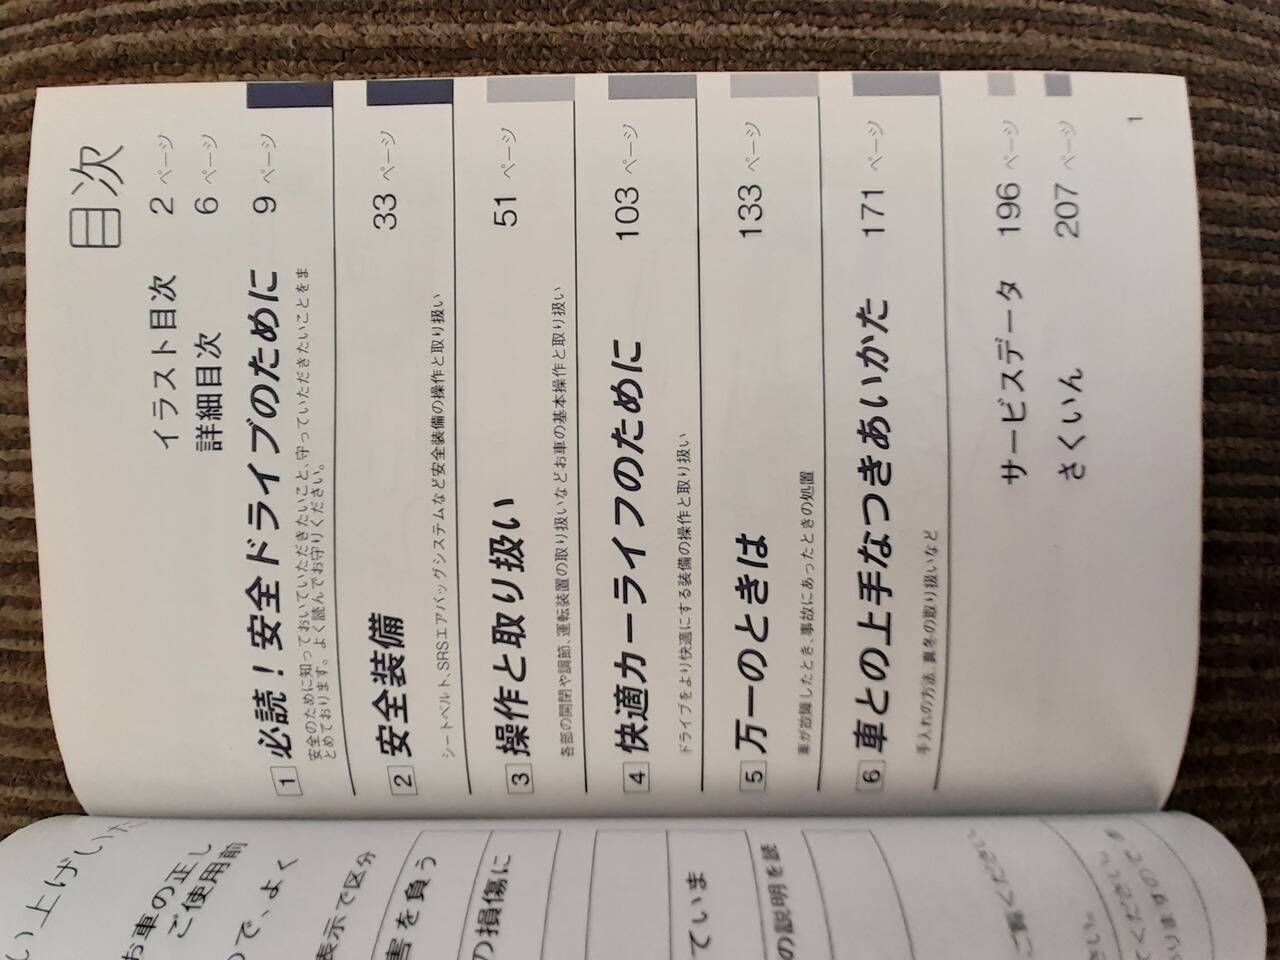 目次
イラスト目次 2 ページ
詳細目次 6 ページ
1 必読！安全ドライブのために 9 ページ
安全のために知っておいていただきたいこと、守っていただきたいことをま
とめております。よく読んでお守りください。
2 安全装備 33 ページ
シートベルト、SRSエアバッグシステムなど安全装備の操作と取り扱い
3 操作と取り扱い 51 ページ
各部の開閉や調節、運転装置の取り扱いなどお車の基本操作と取り扱い
4 快適カーライフのために 103 ページ
ドライブをより快適にする装備の操作と取り扱い
5 万一のときは 133 ページ
車が故障したとき、事故にあったときの処置
6 車との上手なつきあいかた 171 ページ
手入れの方法、真冬の取り扱いなど
サービスデータ 196 ページ
さくいん 207 ページ
1
い上げい
お車の正し
ご使用前
で、よく
表示で区分
害を負う
の損傷に
ていま
の説明を読
ご覧ください
さい。
てください
いますので